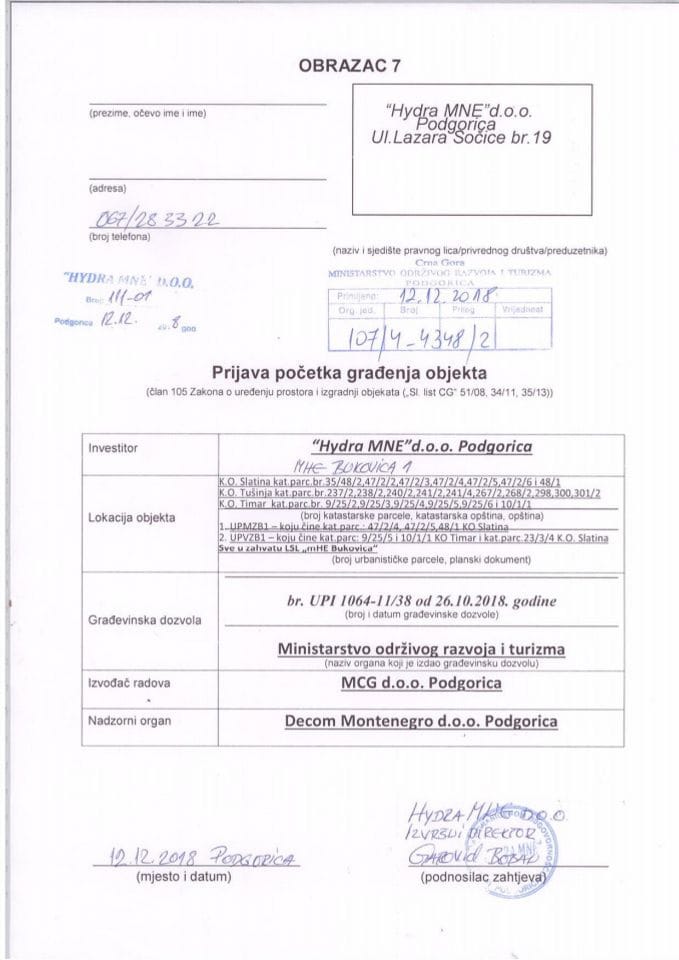 OBRAZAC 7
(prezime, očevo ime i ime)
"Hydra MNE"d.o.o.
Podgorica
Ul.Lazara Sočice br.19
(adresa)
067/28 33 22
(broj telefona)
(naziv i sjedište pravnog lica/privrednog društva/preduzetnika)
"HYDRA MNE" D.O.O.
Broj: 111-01
Podgorica 12.12. 2018 god
Crna Gora
MINISTARSTVO ODRŽIVOG RAZVOJA I TURIZMA
PODGORICA
Primljeno: 12.12.2018.
Org. jed. Broj Prilog Vrijednost
107/4-4348/2
Prijava početka građenja objekta
(član 105 Zakona o uređenju prostora i izgradnji objekata („Sl. list CG" 51/08, 34/11, 35/13))
Investitor
"Hydra MNE"d.o.o. Podgorica
MHE BUKOVICA 1
Lokacija objekta
K.O. Slatina kat.parc.br.35/48/2,47/2/2,47/2/3,47/2/4,47/2/5,47/2/6 i 48/1
K.O. Tušinja kat.parc.br.237/2,238/2,240/2,241/2,241/4,267/2,268/2,298,300,301/2
K.O. Timar kat.parc.br. 9/25/2,9/25/3,9/25/4,9/25/5,9/25/6 i 10/1/1
(broj katastarske parcele, katastarska opština, opština)
1. UPMZB1 – koju čine kat.parc.: 47/2/4, 47/2/5,48/1 KO Slatina
2. UPVZB1 – koju čine kat.parc: 9/25/5 i 10/1/1 KO Timar i kat.parc.23/3/4 K.O. Slatina
Sve u zahvatu LSL „mHE Bukovica"
(broj urbanističke parcele, planski dokument)
Građevinska dozvola
br. UPI 1064-11/38 od 26.10.2018. godine
(broj i datum građevinske dozvole)
Ministarstvo održivog razvoja i turizma
(naziv organa koji je izdao građevinsku dozvolu)
Izvođač radova
MCG d.o.o. Podgorica
Nadzorni organ
Decom Montenegro d.o.o. Podgorica
HYDRA MNE D.O.O.
IZVRŠNI DIREKTOR
12.12.2018 PODGORICA
(mjesto i datum)
(podnosilac zahtjeva)